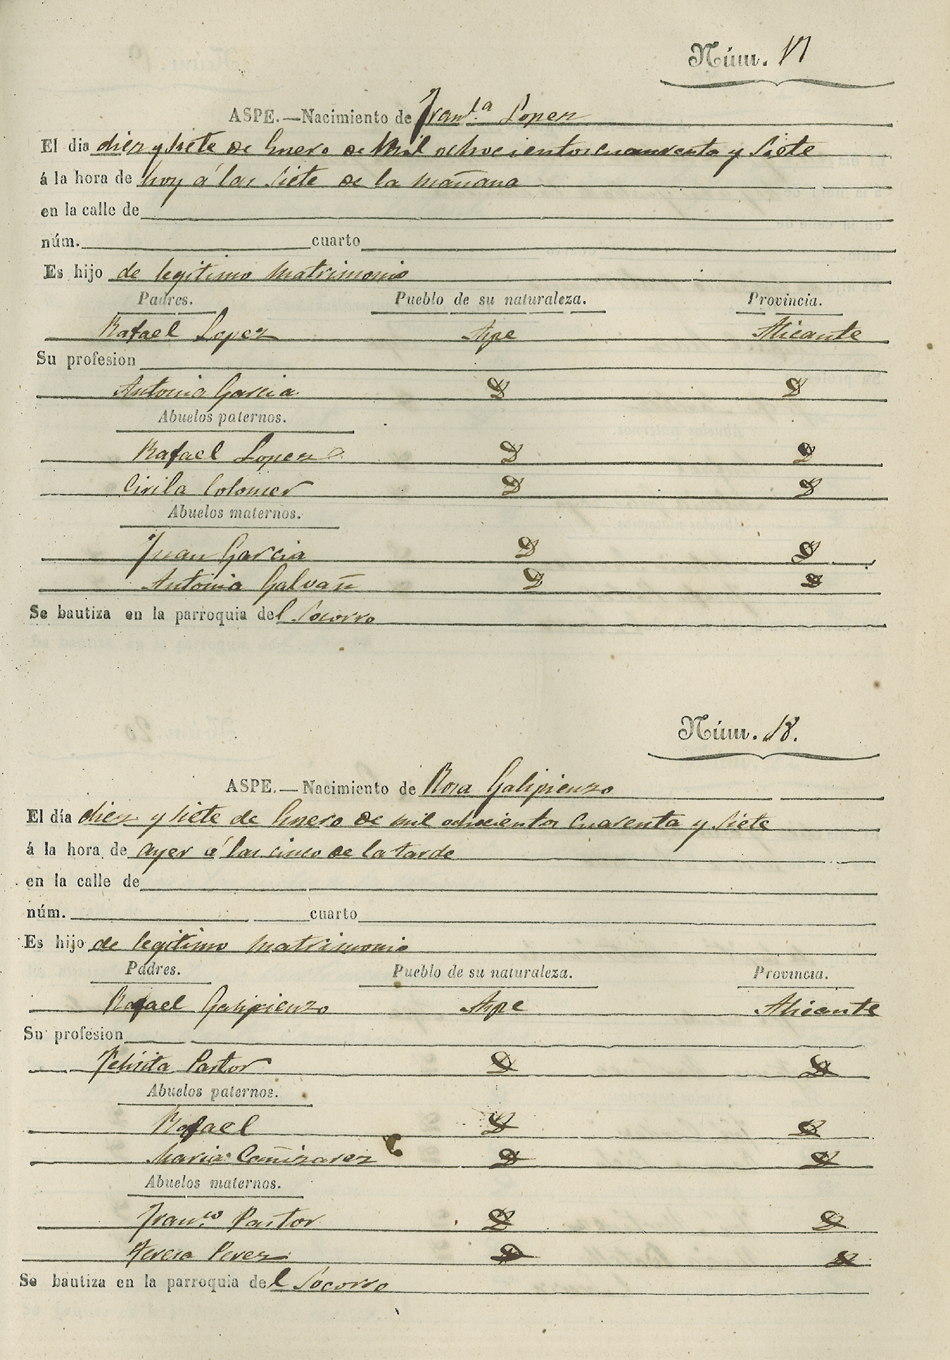 Núm. 17
ASPE.—Nacimiento de Fran.ca Lopez
El dia diez y siete de Enero de Mil ochocientos cuarenta y siete
á la hora de hoy á las siete de la mañana
en la calle de
núm. cuarto
Es hijo de legitimo matrimonio
Padres. Pueblo de su naturaleza. Provincia.
Rafael Lopez Aspe Alicante
Su profesion
Antonia Garcia D D
Abuelos paternos.
Rafael Lopez D D
Cirila Colomer D D
Abuelos maternos.
Juan Garcia D D
Antonia Galvañ D D
Se bautiza en la parroquia del Socorro
Núm. 18.
ASPE.—Nacimiento de Rosa Galipienzo
El día diez y siete de Enero de mil ochocientos cuarenta y siete
á la hora de ayer á las cinco de la tarde
en la calle de
núm. cuarto
Es hijo de legitimo matrimonio
Padres. Pueblo de su naturaleza. Provincia.
Rafael Galipienzo Aspe Alicante
Su profesion
Felicita Pastor D D
Abuelos paternos.
Rafael D D
Maria Cañizarez D D
Abuelos maternos.
Fran.co Pastor D D
Teresa Perez D D
Se bautiza en la parroquia del Socorro